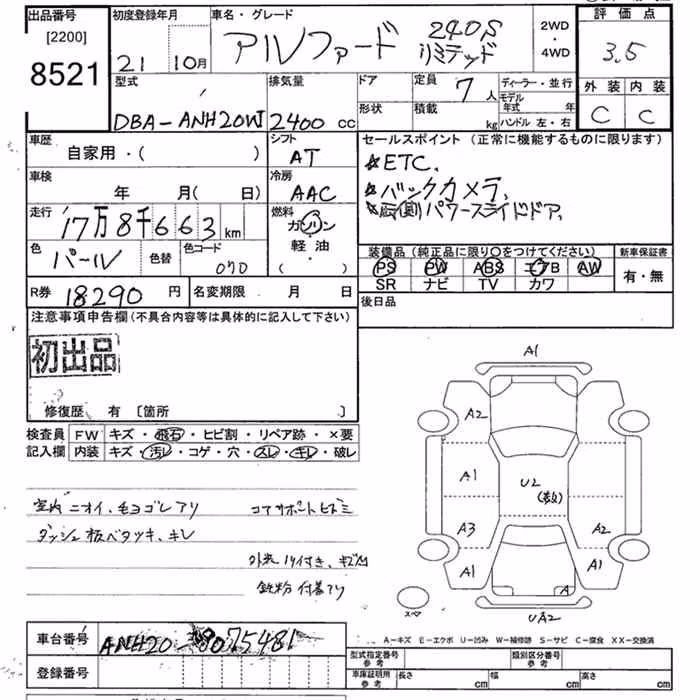 出品番号
[2200]
8521
初度登録年月
21 10月
車名・グレード
アルファード 240S
リミテッド
2WD
・
4WD
評価点
3.5
外装 内装
C C
型式
DBA-ANH20W
排気量
2400 cc
ドア
形状
定員 7人
積載 kg
ディーラー・並行
モデル年式 年
ハンドル 左・右
車歴
自家用・( )
シフト
AT
車検
年 月( 日)
冷房
AAC
走行
17万8千663 km
燃料
ガソリン
・
軽油
( ・ )
色
パール
色替
色コード
070
セールスポイント (正常に機能するものに限ります)
★ETC、
★バックカメラ、
★両側パワースライドドア、
装備品 (純正品に限り○をつけてください)
PS PW ABS エアB AW
SR ナビ TV カワ
新車保証書
有・無
R券 18290 円
名変期限 月 日
後日品
注意事項申告欄(不具合内容等は具体的に記入して下さい)
初出品
修復歴 有 〔箇所 〕
検査員
記入欄
FW キズ・飛石・ヒビ割・リペア跡・×要
内装 キズ・汚レ・コゲ・穴・スレ・キレ・破レ
室内 ニオイ、毛ヨゴレアリ
コアサポートヒズミ
ダッシュ板ベタツキ、キレ
鉄粉付着アリ
A1
A2
A1
U2
A3
A2
A1
A1
A
スペア
UA2
A-キズ E-エクボ U-凹み W-補修跡 S-サビ C-腐食 XX-交換済
車台番号 ANH20-8075481
登録番号
型式指定番号
参考
類別区分番号
参考
車庫証明用
参考
長さ cm
幅 cm
高さ cm